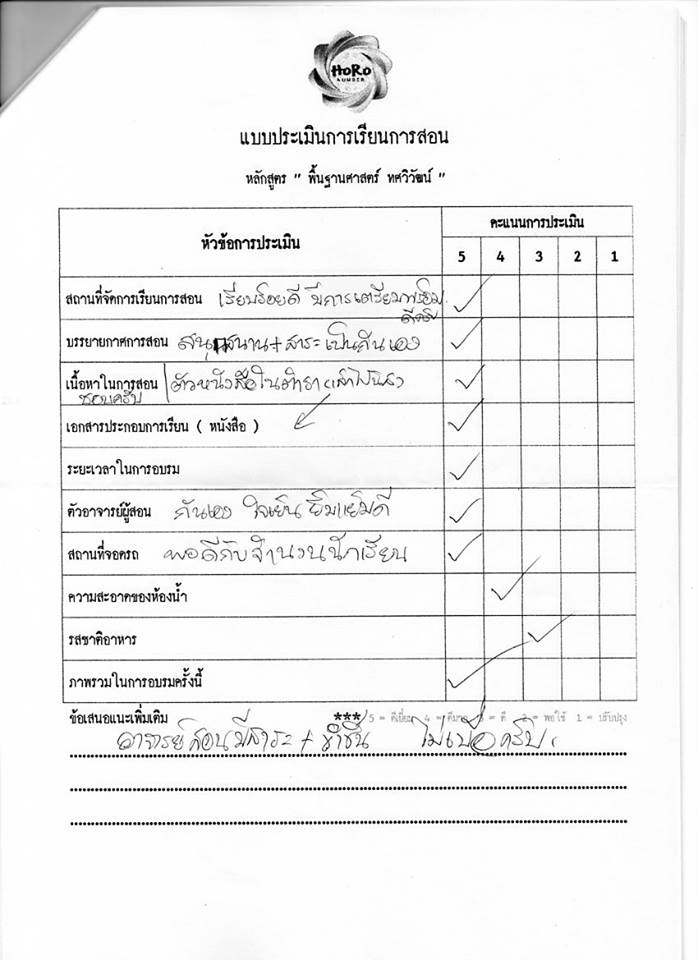 HoRo
NUMBER
แบบประเมินการเรียนการสอน
หลักสูตร " พื้นฐานศาสตร์ ทศวิวัฒน์ "
หัวข้อการประเมิน
คะแนนการประเมิน
5 4 3 2 1
สถานที่จัดการเรียนการสอน เรียบร้อยดี มีการเตรียมพร้อม
ดีครับ
บรรยายกาศการสอน สนุกสนาน+สาระ เป็นกันเอง
เนื้อหาในการสอน ตัวหนังสือใน
ชอบครับ
เอกสารประกอบการเรียน ( หนังสือ )
ระยะเวลาในการอบรม
ตัวอาจารย์ผู้สอน กันเอง ใจเย็น ยิ้มแย้มดี
สถานที่จอดรถ พอดีกับจำนวนนักเรียน
ความสะอาดของห้องน้ำ
รสชาติอาหาร
ภาพรวมในการอบรมครั้งนี้
ข้อเสนอแนะเพิ่มเติม *** 5 = ดีเยี่ยม 4 = ดีมาก 3 = ดี 2 = พอใช้ 1 = ปรับปรุง
อาจารย์สอนมีสาระ + ขำขัน ไม่เบื่อครับ